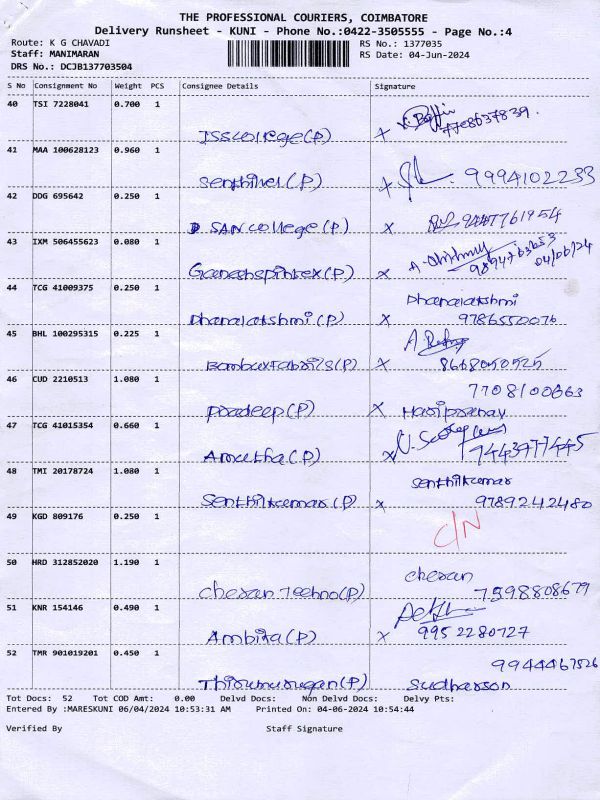 THE PROFESSIONAL COURIERS, COIMBATORE
Delivery Runsheet - KUNI - Phone No.:0422-3505555 - Page No.:4
Route: K G CHAVADI RS No.: 1377035
Staff: MANIMARAN RS Date: 04-Jun-2024
DRS No.: DCJB137703504
S No Consignment No Weight PCS Consignee Details Signature
40 TSI 7228041 0.700 1
ISS college(P) x 7708637839.
41 MAA 100628123 0.960 1
Senthilvel(P) x 9994102233
42 DDG 695642 0.250 1
SAN college(P) x 9487761954
43 IXM 506455623 0.080 1
Ganeshspintex(P) x 9894763653 04/06/24
44 TCG 41009375 0.250 1 Dhanalakshmi
Dhanalakshmi(P) x 9786550076
45 BHL 100295315 0.225 1
(P) x 8668050525
46 CUD 2210513 1.080 1 7708100663
Pradeep(P) x Haripranav
47 TCG 41015354 0.660 1
Amutha(P) x 7443977445
48 TMI 20178724 1.080 1 Senthilkumar
Senthilkumar(P) x 9789242480
49 KGD 809176 0.250 1 C/N
50 HRD 312852020 1.190 1 Cheran
Cheran Techno(P) 7598808679
51 KNR 154146 0.490 1
Ambika(P) x 9952280727
52 TMR 901019201 0.450 1 9944467526
Thirumurugan(P) Sudharson
Tot Docs: 52 Tot COD Amt: 0.00 Delvd Docs: Non Delvd Docs: Delvy Pts:
Entered By :MARESKUNI 06/04/2024 10:53:31 AM Printed On: 04-06-2024 10:54:44
Verified By Staff Signature